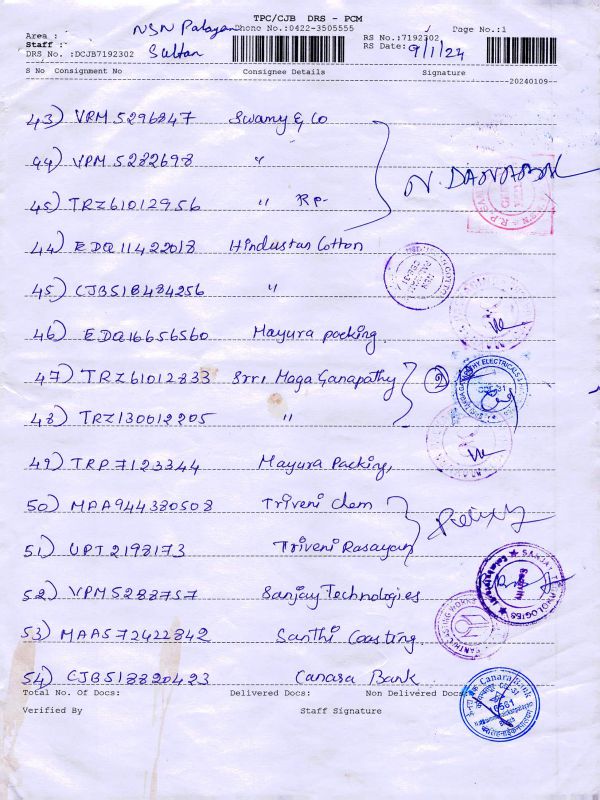 TPC/CJB DRS - PCM
Area : NSN Palayam Phone No.:0422-3505555 RS No.:7192302 Page No.:1
Staff : Sultan RS Date: 9/1/24
DRS No. :DCJB7192302
S No Consignment No Consignee Details Signature
20240109
43) VPM 5296847 Swamy & Co
44) VPM 5282698 "
45) TRZ61012956 " RP-
N. DANABAL
44) EDQ11422018 Hindustan Cotton
45) CJB518484256 "
46) EDQ16656560 Mayura packing
47) TRZ61012833 Srri Maga Ganapathy 2
48) TRZ130012205 "
49) TRP7123344 Mayura Packing,
50) MAA944380508 Triveni Chem
51) UPT2198173 Triveni Rasayan
52) VPM5288757 Sanjay Technologies
53) MAA572422842 Santhi Coasting
54) CJB518820423 Canara Bank
Total No. Of Docs: Delivered Docs: Non Delivered Docs:
Verified By Staff Signature
Canara Bank